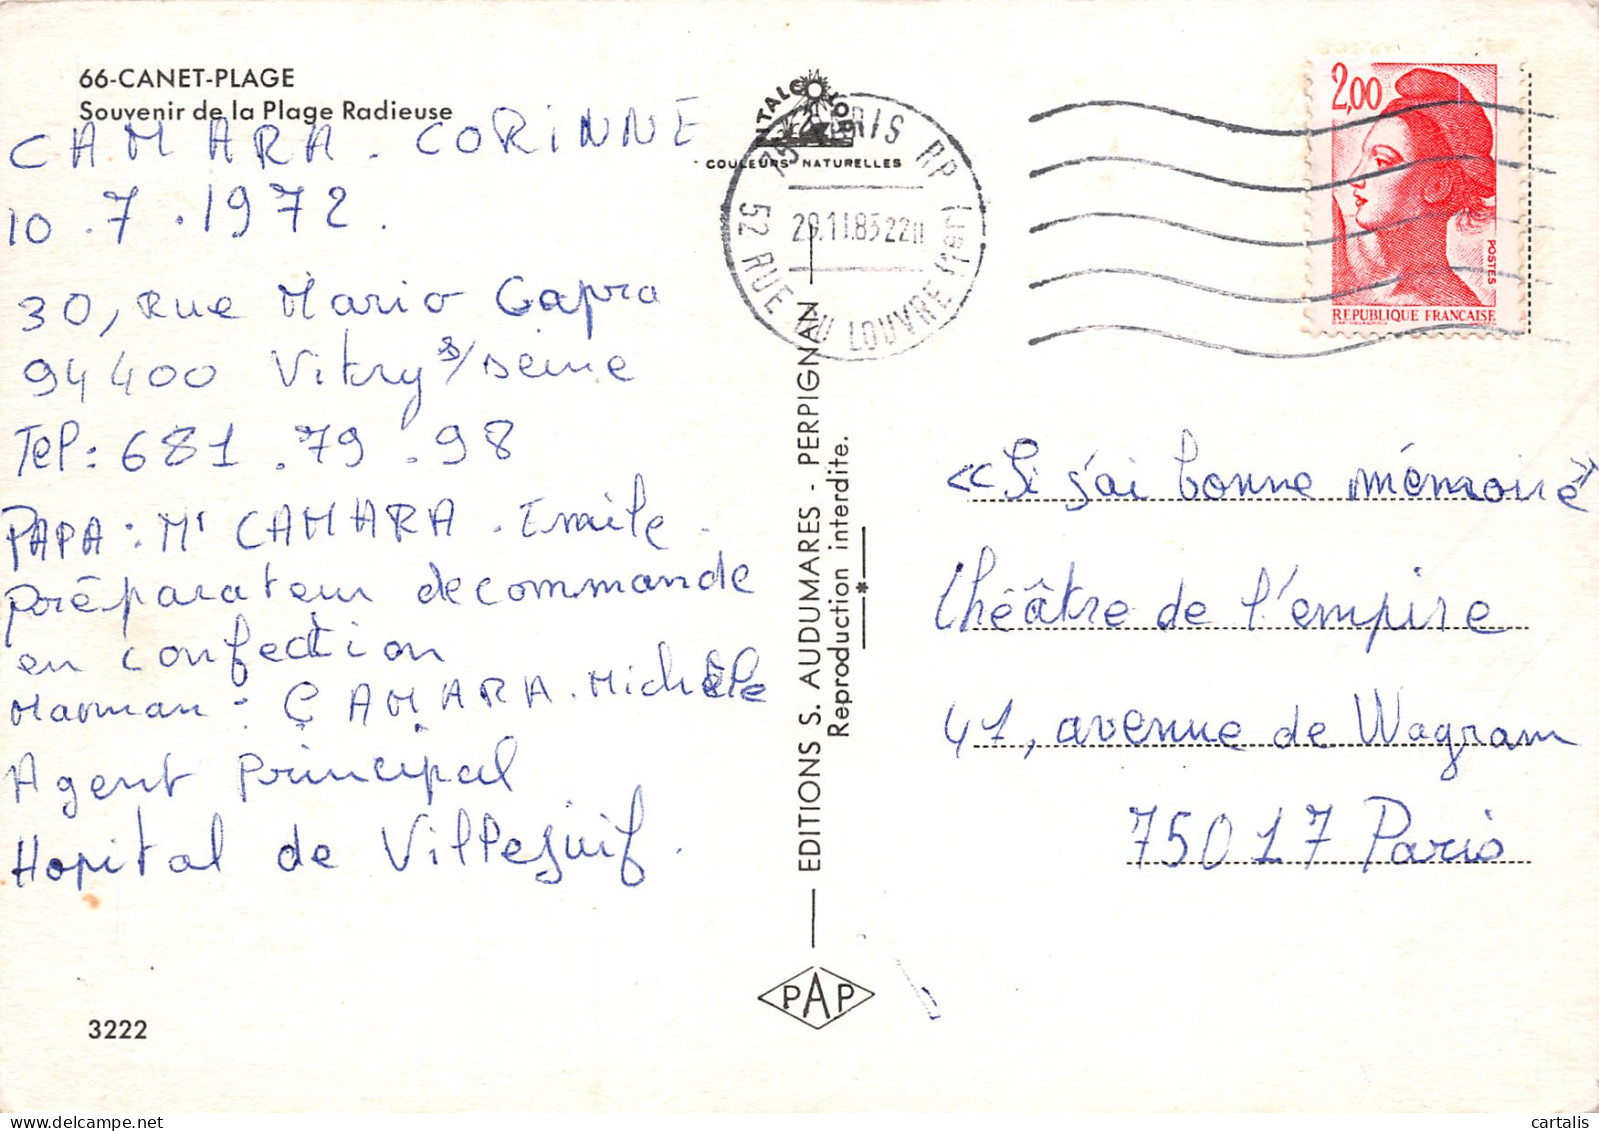 66-CANET-PLAGE
Souvenir de la Plage Radieuse
CAMARA. CORINNE
10.7.1972.
30, Rue Mario Capra
94400 Vitry s/seine
Tel: 681.79.98
PAPA: Mr CAMARA. Emile.
Préparateur de commande
en confection
Maman: CAMARA. Michèle
Agent Principal
Hopital de Villejuif.
3222
ITALCOLOR
COULEURS NATURELLES
75 PARIS RP
52 RUE DU LOUVRE (1er)
EDITIONS S. AUDUMARES - PERPIGNAN
Reproduction interdite.
PAP
2,00
POSTES
REPUBLIQUE FRANCAISE
«Si j'ai bonne mémoire»
théâtre de l'empire
41, avenue de Wagram
75017 Paris
cartalis